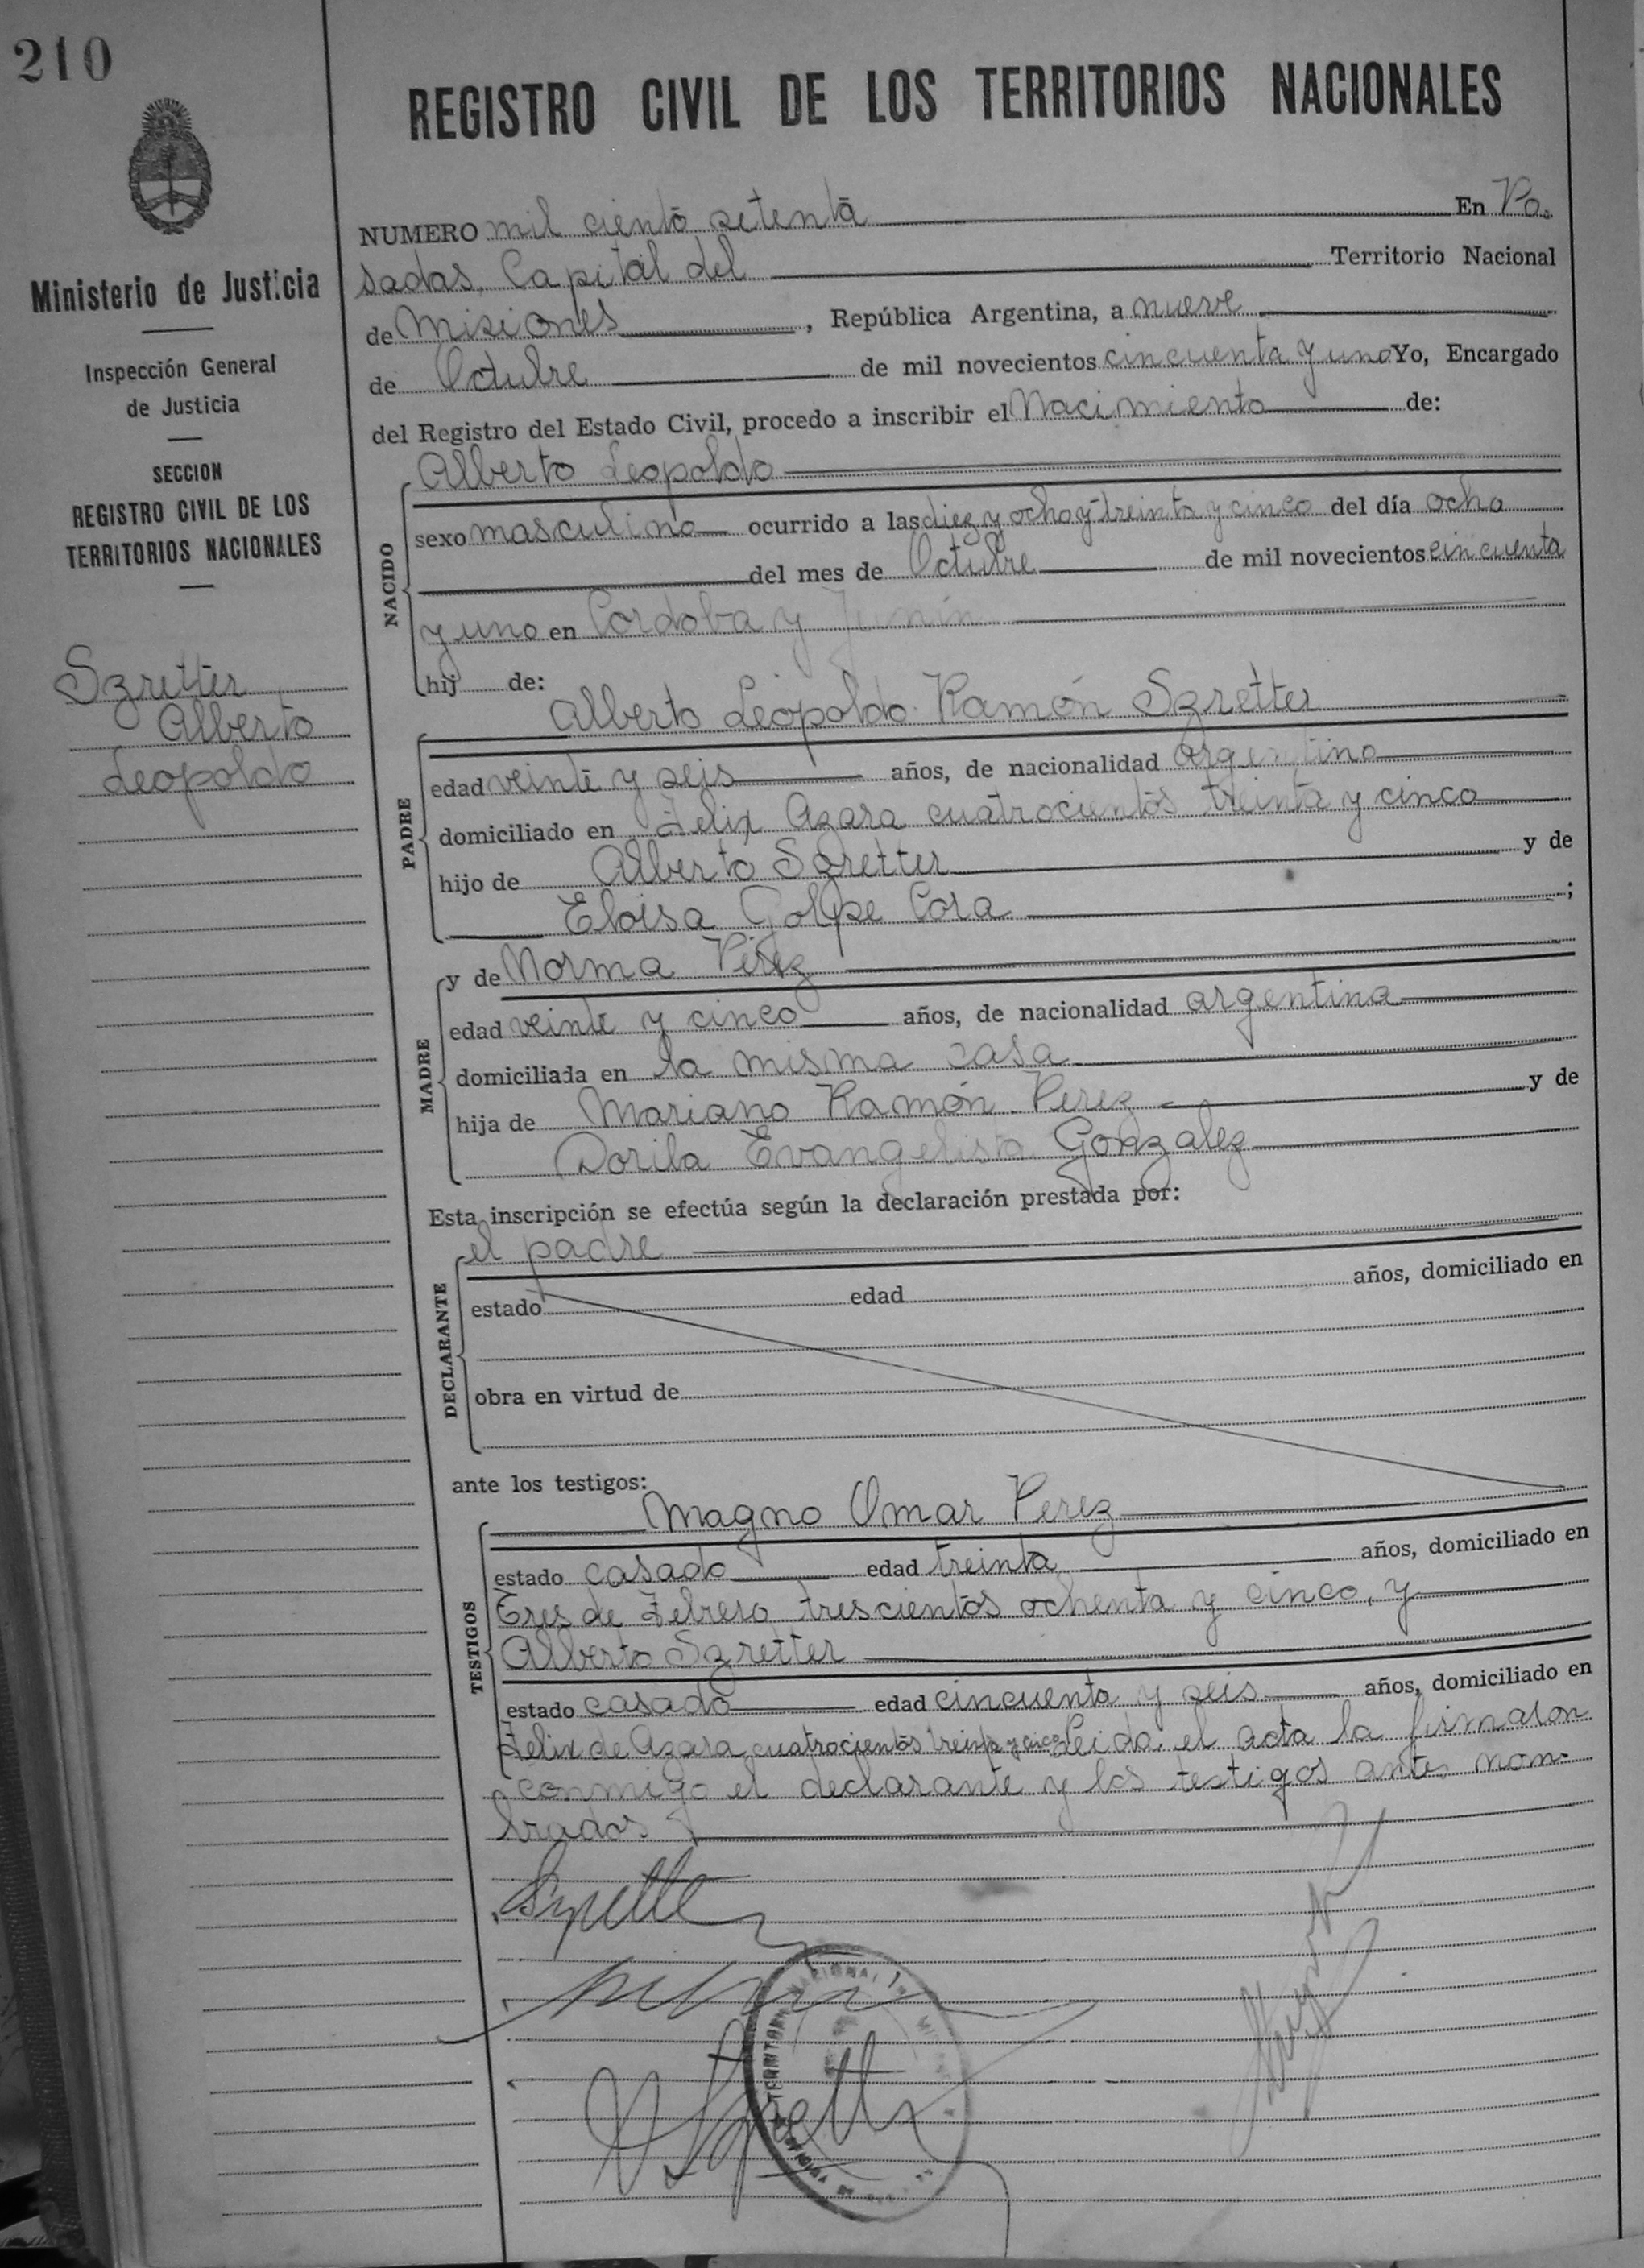 210
Ministerio de Justicia
Inspección General
de Justicia
SECCION
REGISTRO CIVIL DE LOS
TERRITORIOS NACIONALES
Szretter
Alberto
Leopoldo
REGISTRO CIVIL DE LOS TERRITORIOS NACIONALES
NUMERO mil ciento setenta En Po-
sadas, Capital del Territorio Nacional
de Misiones, República Argentina, a nueve
de Octubre de mil novecientos cincuenta y uno Yo, Encargado
del Registro del Estado Civil, procedo a inscribir el Nacimiento de:
Alberto Leopoldo
NACIDO
sexo masculino ocurrido a las diez y ocho y treinta y cinco del día ocho
del mes de Octubre de mil novecientos cincuenta
y uno en Cordoba y Junín
hij de:
Alberto Leopoldo Ramón Szretter
PADRE
edad veinte y seis años, de nacionalidad argentino
domiciliado en Felix Azara cuatrocientos treinta y cinco
hijo de Alberto Szretter y de
Eloisa Golpe Cora ;
MADRE
y de Norma Pérez
edad veinte y cinco años, de nacionalidad argentina
domiciliada en la misma casa
hija de Mariano Ramón Perez y de
Dorila Evangelista Gonzalez
Esta inscripción se efectúa según la declaración prestada por:
el padre
DECLARANTE
estado edad años, domiciliado en
obra en virtud de
ante los testigos:
Magno Omar Perez
TESTIGOS
estado casado edad treinta años, domiciliado en
Tres de Febrero trescientos ochenta y cinco, y
Alberto Szretter
estado casado edad cincuenta y seis años, domiciliado en
Felix de Azara cuatrocientos treinta y cinco Leida el acta la firmaron
conmigo el declarante y los testigos antes nom-
brados.
Szretter
A Szretter